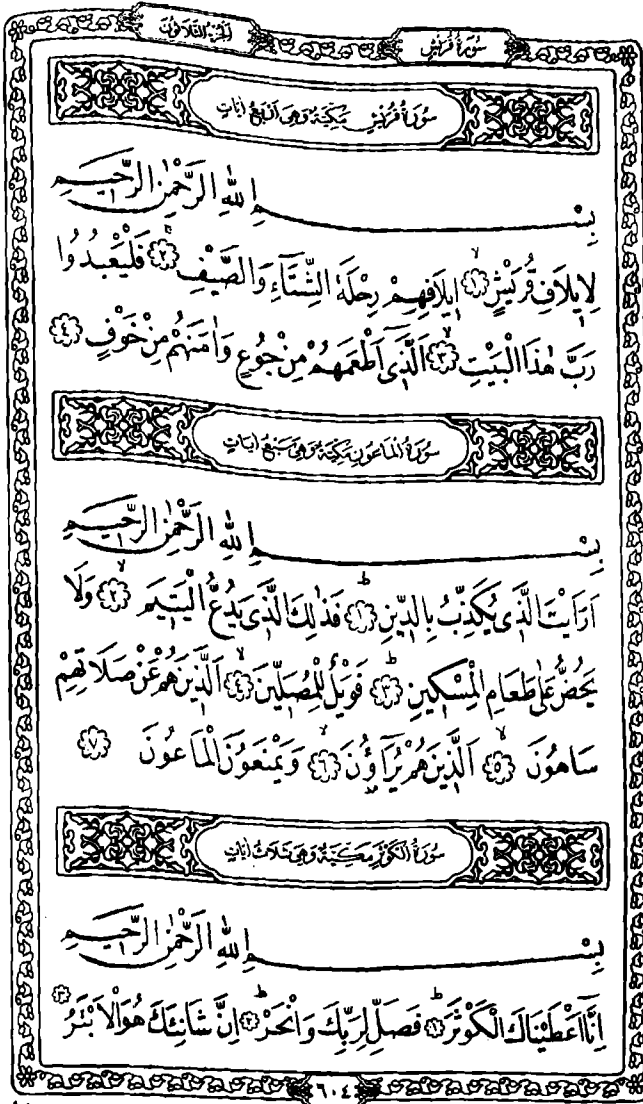 سُورَةُ قُرَيْشٍ
الجزء الثلاثون
سُورَةُ قُرَيْشٍ مَكِّيَّةٌ وَهِيَ اَرْبَعُ اٰيَاتٍ
بِسْمِ اللّٰهِ الرَّحْمٰنِ الرَّحٖيمِ
لِاٖيلَافِ قُرَيْشٍۙ ﴿١﴾ اٖيلَافِهِمْ رِحْلَةَ الشِّتَٓاءِ وَالصَّيْفِۚ ﴿٢﴾ فَلْيَعْبُدُوا
رَبَّ هٰذَا الْبَيْتِۙ ﴿٣﴾ اَلَّذٖٓي اَطْعَمَهُمْ مِنْ جُوعٍ وَاٰمَنَهُمْ مِنْ خَوْفٍ ﴿٤﴾
سُورَةُ الْمَاعُونِ مَكِّيَّةٌ وَهِيَ سَبْعُ اٰيَاتٍ
بِسْمِ اللّٰهِ الرَّحْمٰنِ الرَّحٖيمِ
اَرَاَيْتَ الَّذٖي يُكَذِّبُ بِالدّٖينِۜ ﴿١﴾ فَذٰلِكَ الَّذٖي يَدُعُّ الْيَتٖيمَۙ ﴿٢﴾ وَلَا
يَحُضُّ عَلٰى طَعَامِ الْمِسْكٖينِۜ ﴿٣﴾ فَوَيْلٌ لِلْمُصَلّٖينَۙ ﴿٤﴾ اَلَّذٖينَ هُمْ عَنْ صَلَاتِهِمْ
سَاهُونَۙ ﴿٥﴾ اَلَّذٖينَ هُمْ يُرَٓاؤُ۫نَۙ ﴿٦﴾ وَيَمْنَعُونَ الْمَاعُونَ ﴿٧﴾
سُورَةُ الْكَوْثَرِ مَكِّيَّةٌ وَهِيَ ثَلَاثُ اٰيَاتٍ
بِسْمِ اللّٰهِ الرَّحْمٰنِ الرَّحٖيمِ
اِنَّٓا اَعْطَيْنَاكَ الْكَوْثَرَۜ ﴿١﴾ فَصَلِّ لِرَبِّكَ وَانْحَرْۜ ﴿٢﴾ اِنَّ شَانِئَكَ هُوَ الْاَبْتَرُ ﴿٣﴾
٦٠٤